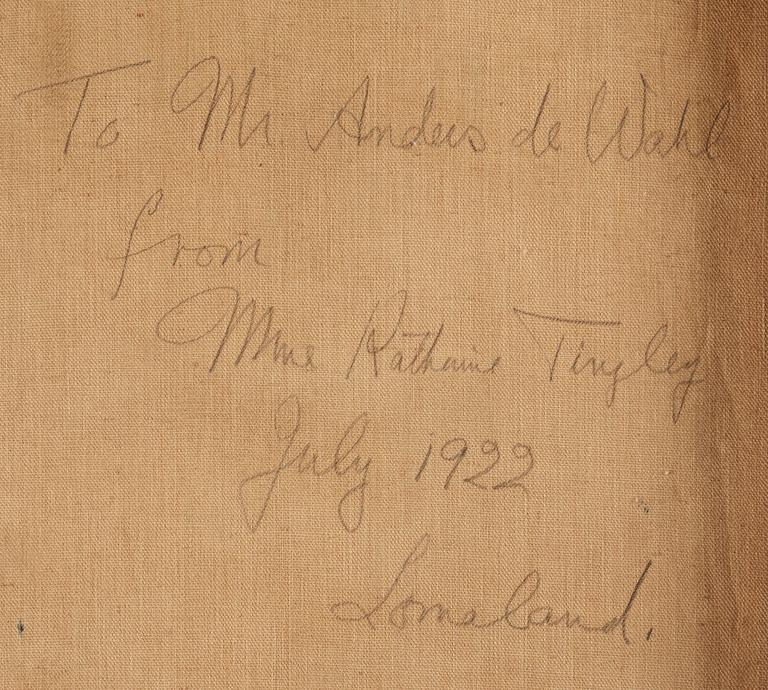 To Mr. Anders de Wahl
from
Mme Katherine Tingley
July 1922
Lomaland.